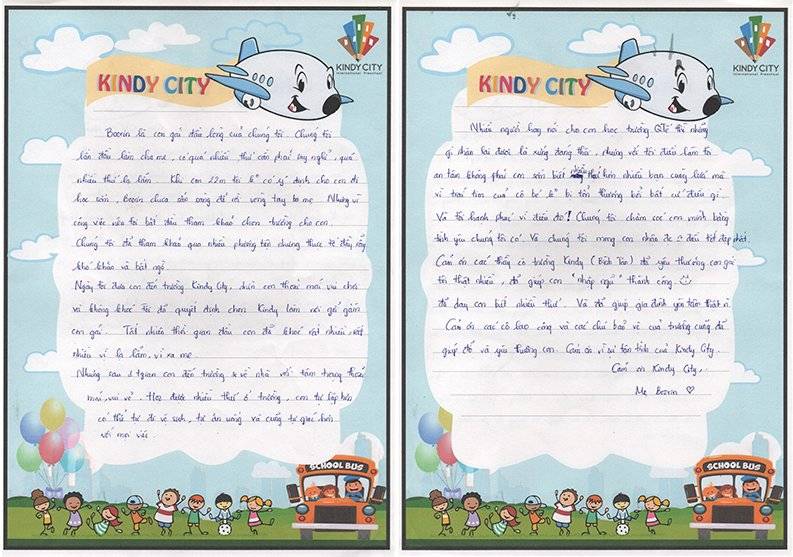 KINDY CITY
International Preschool
KINDY CITY
Boorin là con gái đầu lòng của chúng tôi. Chúng tôi
lần đầu làm cha mẹ, có quá nhiều thứ cần phải suy nghĩ, quá
nhiều thứ lạ lẫm. Khi con 12m tôi k° có ý định cho con đi
học sớm. Boorin chưa sẵn sàng để rời vòng tay ba mẹ. Nhưng vì
công việc nên tôi bắt đầu tham khảo chọn trường cho con.
Chúng tôi đã tham khảo qua nhiều phương tiện nhưng thực tế đầy rẫy
khó khăn và bất ngờ.
Ngày tôi đưa con đến trường Kindy City, nhìn con thoải mái vui chơi
và không khóc tôi đã quyết định chọn Kindy làm nơi gởi gắm
con gái. Tất nhiên thời gian đầu con đã khóc rất nhiều, rất
nhiều vì lạ lẫm, vì xa mẹ.
Nhưng sau 1 tgian con đến trường & về nhà với tâm trạng thoải
mái, vui vẻ. Học được nhiều thứ ở trường, con tự lập hơn
có thể tự đi vệ sinh, tự ăn uống và cũng tự giác hơn
với mọi việc.
SCHOOL BUS
KINDY CITY
International Preschool
KINDY CITY
Nhiều người hay nói cho con học trường QTế thì những
gì nhận lại được là xứng đáng thôi, nhưng với tôi được làm tôi
an tâm không phải con sớm biết nhiều thứ hơn nhiều bạn cùng lứa mà
vì trái tim của cô bé k° bị tổn thương bởi bất cứ điều gì.
Và tôi hạnh phúc vì điều đó! Chúng tôi chăm sóc con mình bằng
tình yêu chúng tôi có. Và chúng tôi mong con nhận đc điều tốt đẹp nhất.
Cảm ơn các thầy cô trường Kindy (Bình Tân) đã yêu thương con gái
tôi thật nhiều, đã giúp con "nhập ngũ" thành công
đã dạy con biết nhiều thứ. Và đã giúp gia đình yên tâm thật nhiều.
Cảm ơn các cô lao công và các chú bảo vệ của trường cũng đã
giúp đỡ và yêu thương con. Cảm ơn vì sự tận tình của Kindy City.
Cám ơn Kindy City,
Mẹ Boorin ♡
SCHOOL BUS